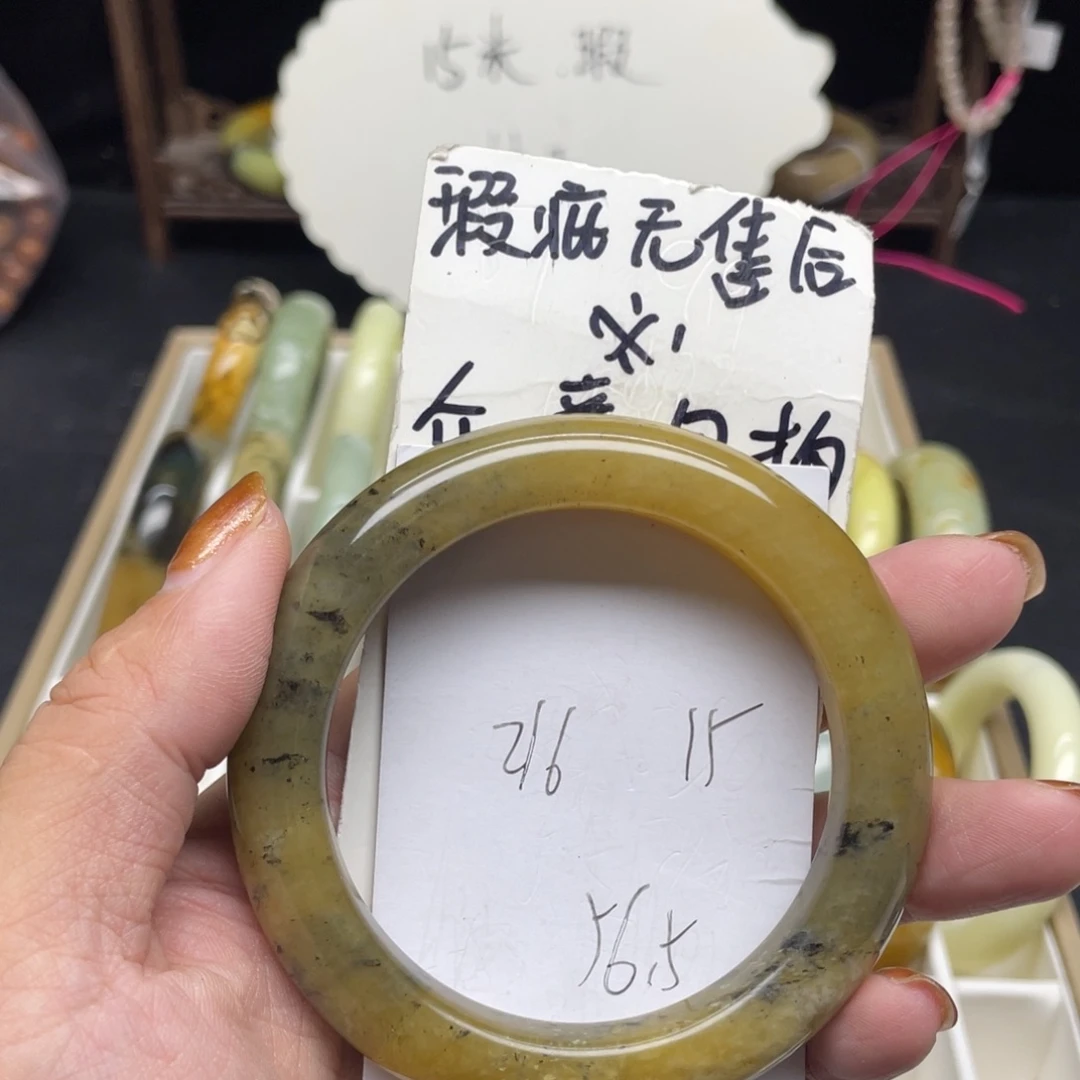 瑕疵无售后
介意勿拍
216 15
56.5